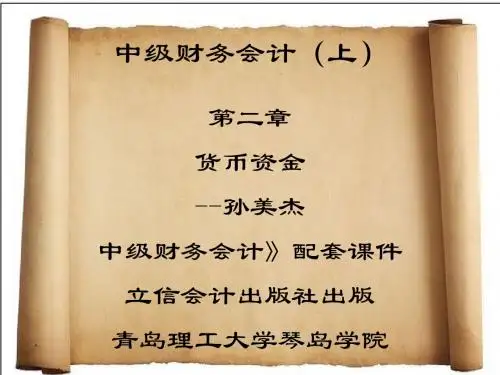 中级财务会计（上）
第二章
货币资金
--孙美杰
中级财务会计》配套课件
立信会计出版社出版
青岛理工大学琴岛学院